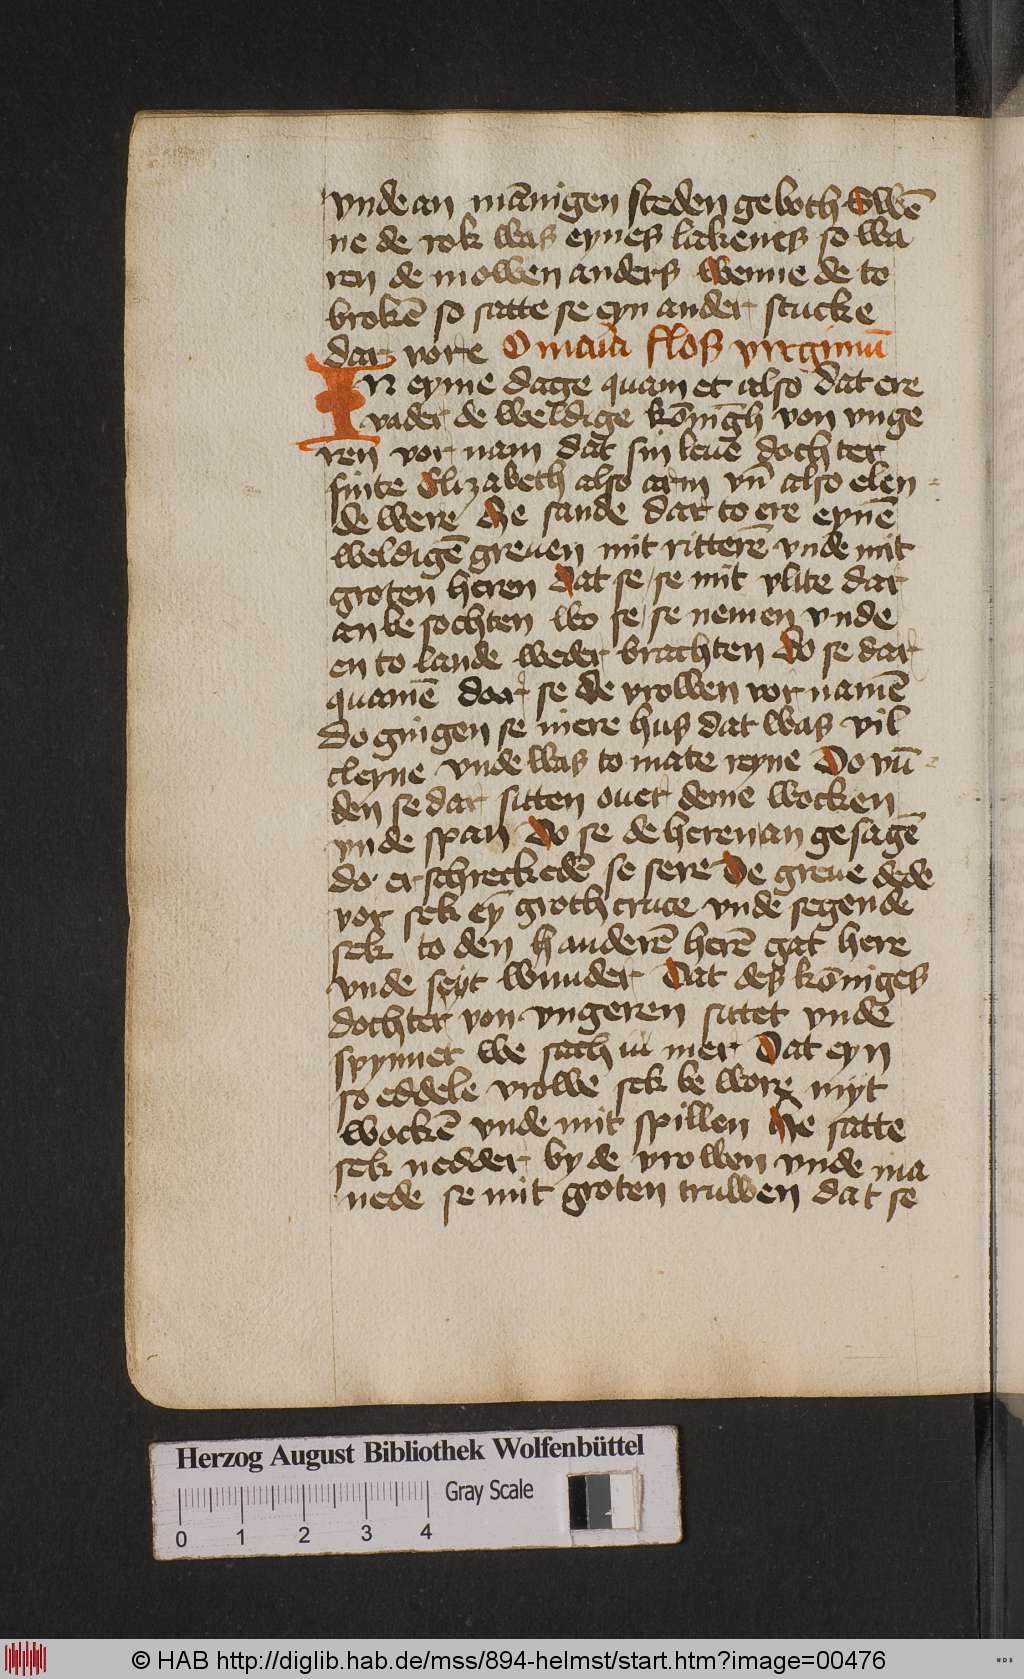 vnde an mānigen steden geboth Swē
ne de rok was eynes lakenes so wa
ren de mowen anders wenne de to
brokē so satte se eyn ander stucke
dar vore O maria flos virginū
In eyme dage quam et also dat ere
vader de weldige kōnīgh von vnge
ren vor nam dat sin leue dochter
sinte Elizabeth also arm vn̄ also elen
de were He sande dar to ere eynē
weldigē greuen mit ritterē vnde mit
groten heren Dat se se mit vlite dar
an be sochten wo se se nemen vnde
en to lande weder brachten Do se dar
quamē daar se de vrowen vor namē
do gingen se in ere hus dat was vil
cleyne vnde was to mate reyne Do vū
den se dar sitten ouer deme wocken
vnde span Do se de heren an gesagē
do erschreckedē se sere De greue dede
vor sek eȳ groth cruce vnde segende
sek to den h anderē herē gat here
vnde seyt wunder Dat des kōniges
dochter von vngeren sittet vnde
spynnet we sach iu mer Dat eyn
so eddele vrowe sek be wore myt
wockē vnde mit spillen He satte
sek nedder by de vrowen vnde ma
nede se mit groten truwen dat se
Herzog August Bibliothek Wolfenbüttel
Gray Scale
0 1 2 3 4
© HAB http://diglib.hab.de/mss/894-helmst/start.htm?image=00476